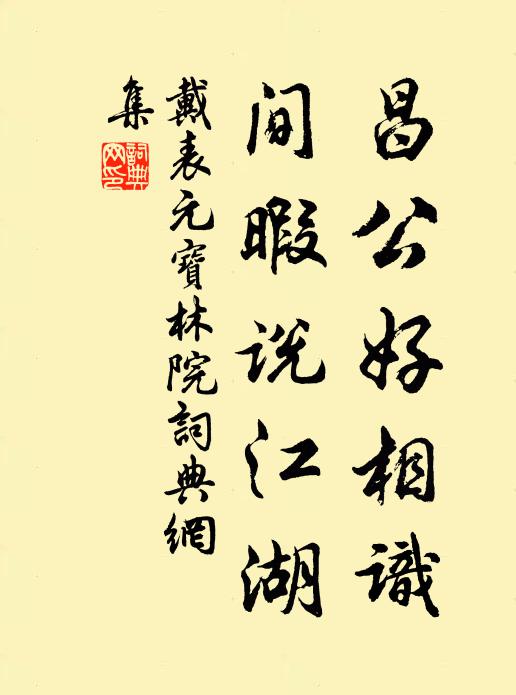 昌公好相識
間暇説江湖
戴表元寶林院詞典網
集
詞典
网印